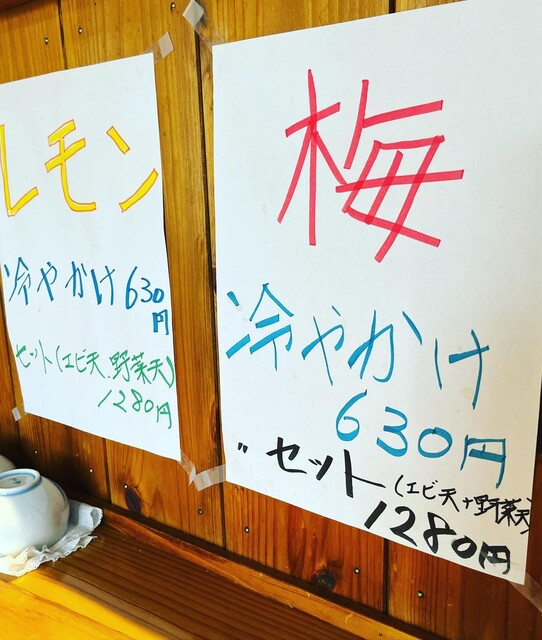 レモン
冷やかけ630
円
セット(エビ天、野菜天)
1280円
梅
冷やかけ
630円
〃 セット(エビ天+野菜天)
1280円